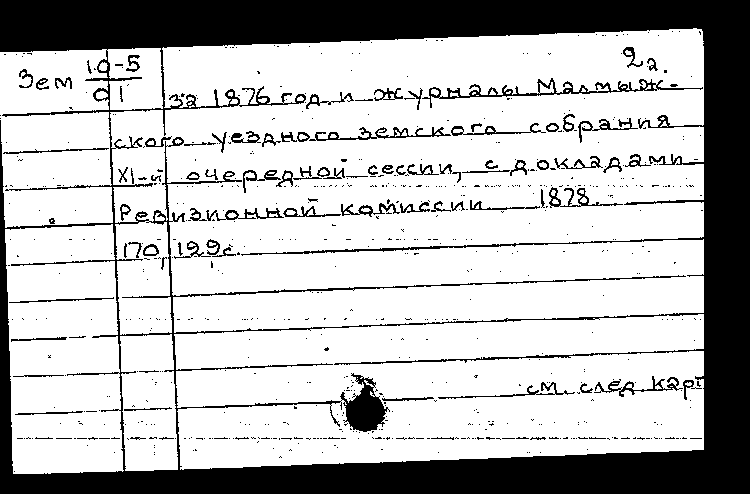 2а.
Зем 10-5
01
за 1876 год и журналы Малмыж-
ского уездного земского собрания
XI-й очередной сессии, с докладами
Ревизионной комиссии 1878.
170, 129с.
см. след. карт